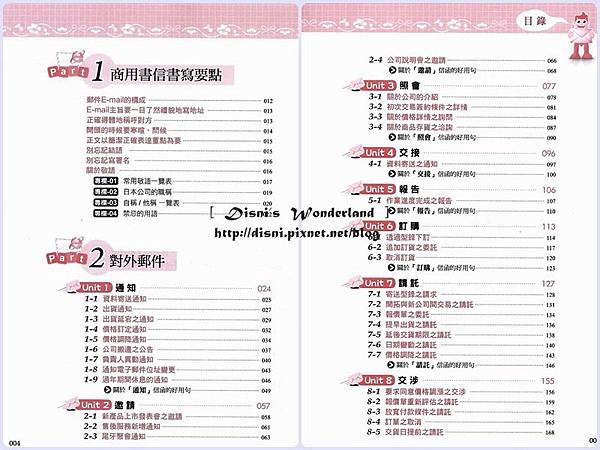 Part 1 商用書信書寫要點
郵件E-mail的構成 012
E-mail主旨要一目了然禮貌地寫地址 013
正確得體地稱呼對方 013
開頭的時候要寒暄、問候 014
正文以簡潔正確表達重點為要 015
別忘記結語 015
別忘記寫署名 016
關於敬語 016
專欄-01 常用敬語一覽表 017
專欄-02 日本公司的職稱 019
專欄-03 自稱/他稱一覽表 020
專欄-04 禁忌的用語
Part 2 對外郵件
Unit 1 通知 024
1-1 資料寄送通知 025
1-2 出貨通知 027
1-3 出貨延宕之通知 029
1-4 價格訂定通知 031
1-5 價格調降通知 033
1-6 公司搬遷之公告 037
1-7 負責人異動通知 040
1-8 通知電子郵件位址變更 043
1-9 過年期間休息的通知 046
關於「通知」信函的好用句 049
Unit 2 邀請 057
2-1 新產品上市發表會之邀請 058
2-2 售後服務新增通知 061
2-3 尾牙聚會通知 063
004
目錄
2-4 公司說明會之邀請 066
關於「邀請」信函的好用句 068
Unit 3 照會 077
3-1 關於公司的介紹 078
3-2 初次交易簽約條件之詳情 081
3-3 關於價格詳情之詢問 084
3-4 關於商品存貨之洽詢 088
關於「照會」信函的好用句 090
Unit 4 交接 096
4-1 資料寄送之通知 097
關於「交接」信函的好用句 100
Unit 5 報告 106
5-1 作業進度完成之報告 107
關於「報告」信函的好用句 110
Unit 6 訂購 113
6-1 透過型錄下訂 114
6-2 追加訂貨之委託 118
6-3 取消訂貨 120
關於「訂購」信函的好用句 123
Unit 7 請託 127
7-1 寄送型錄之請求 128
7-2 開拓與新公司間交易之請託 131
7-3 報價單之委託 134
7-4 提早出貨之請託 136
7-5 延後交貨期限之請託 138
7-6 日期變動之請託 140
7-7 價格調降之請託 143
關於「請託」信函的好用句 146
Unit 8 交涉 155
8-1 要求同意價格調漲之交涉 156
8-2 報價單重新評估之請託 159
8-3 放寬付款條件之請託 162
8-4 訂單之取消 165
8-5 交貨日提前之請託 168
00
[ Disni's Wonderland ]
http://disni.pixnet.net/blog